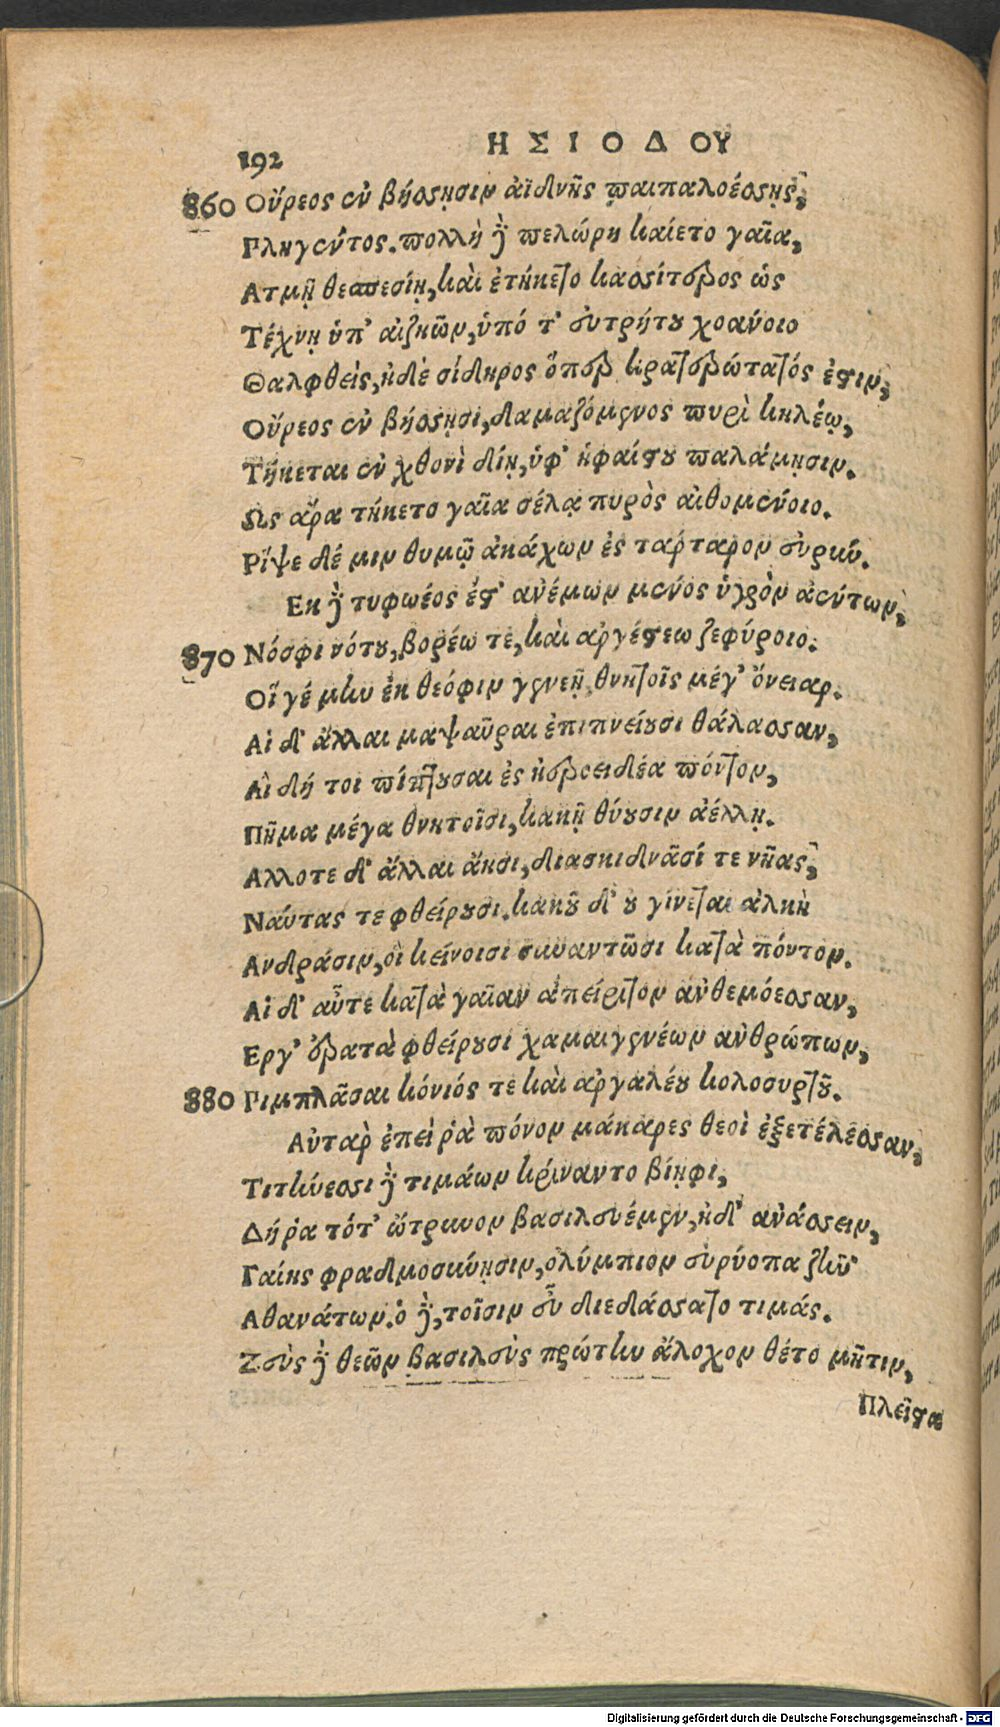 ΗΣΙΟΔΟΥ
192
860 Οὔρεος ἐν βήσσῃσιν ἀϊδνῆς παιπαλοέσσης,
Πληγέντος. πολλὴ δὲ πελώρη καίετο γαῖα,
Ατμῇ θεσπεσίῃ, καὶ ἐτήκετο κασσίτερος ὡς
Τέχνῃ ὑπ' αἰζηῶν, ὑπό τ' εὐτρήτου χοάνοιο
Θαλφθεὶς, ἠδὲ σίδηρος ὅπερ κρατερώτατός ἐστιν,
Οὔρεος ἐν βήσσῃσι, δαμαζόμενος πυρὶ κηλέῳ,
Τήκεται ἐν χθονὶ δίῃ, ὑφ' ἡφαίστου παλάμῃσιν.
Ως ἄρα τήκετο γαῖα σέλᾳ πυρὸς αἰθομένοιο.
Ρίψε δέ μιν θυμῷ ἀκάχων ἐς τάρταρον εὐρύν.
Εκ δὲ τυφωέος ἔστ' ἀνέμων μένος ὑγρὸν ἀέντων,
870 Νόσφι νότου, βορέω τε, καὶ ἀργέστεω ζεφύροιο.
Οἵ γέ μὴν ἐκ θεόφιν γενεῇ, θνητοῖς μέγ' ὄνειαρ.
Αἱ δ' ἄλλαι μαψαῦραι ἐπιπνείουσι θάλασσαν,
Αἳ δή τοι πίπτουσαι ἐς ἠεροειδέα πόντον,
Πῆμα μέγα θνητοῖσι, κακῇ θύουσιν ἀέλλῃ.
Αλλοτε δ' ἄλλαι ἄησι, διασκιδνᾶσί τε νῆας,
Ναύτας τε φθείρουσι. κακοῦ δ' οὐ γίνεται ἀλκὴ
Ανδράσιν, οἳ κείνοισι συναντῶσι κατὰ πόντον.
Αἱ δ' αὖτε κατὰ γαῖαν ἀπείριτον ἀνθεμόεσσαν,
Εργ' ἐρατὰ φθείρουσι χαμαιγενέων ἀνθρώπων,
880 Πιμπλᾶσαι κόνιός τε καὶ ἀργαλέου κολοσυρτοῦ.
Αὐτὰρ ἐπεὶ ῥὰ πόνον μάκαρες θεοὶ ἐξετέλεσσαν,
Τιτήνεσσι δὲ τιμάων κρίναντο βίηφι,
Δή ῥα τότ' ὤτρυνον βασιλευέμεν, ἠδ' ἀνάσσειν,
Γαίης φραδμοσύνῃσιν, ὀλύμπιον εὐρύοπα ζῆν
Αθανάτων. ὁ δὲ, τοῖσιν εὖ διεδάσσατο τιμάς.
Ζεὺς δὲ θεῶν βασιλεὺς πρώτην ἄλοχον θέτο μῆτιν,
Πλεῖστα
Digitalisierung gefördert durch die Deutsche Forschungsgemeinschaft - DFG